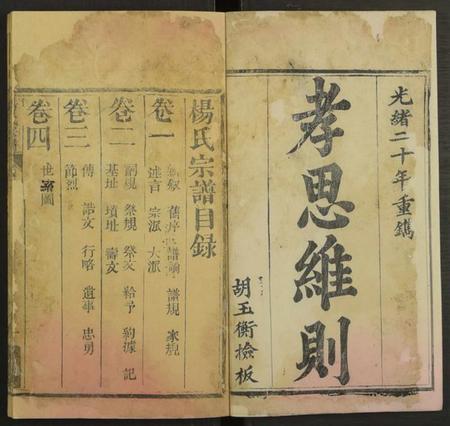 光緒二十年重鐫
孝思維則
胡玉衡撿板
楊氏宗譜目錄
卷一
新敘 舊序 譜論 譜規 家規
述言 宗派 大派
卷二
祠規 祭規 祭文 給予 執據 記
基址 墳址 壽文
卷三
傳 誥文 行略 遺事 忠勇
節烈
卷四
世系圖